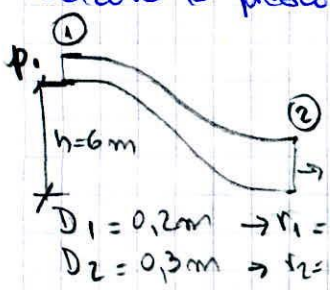 ①
P₁
②
h=6m
D₁ = 0,2m → r₁ =
D₂ = 0,3m → r₂=